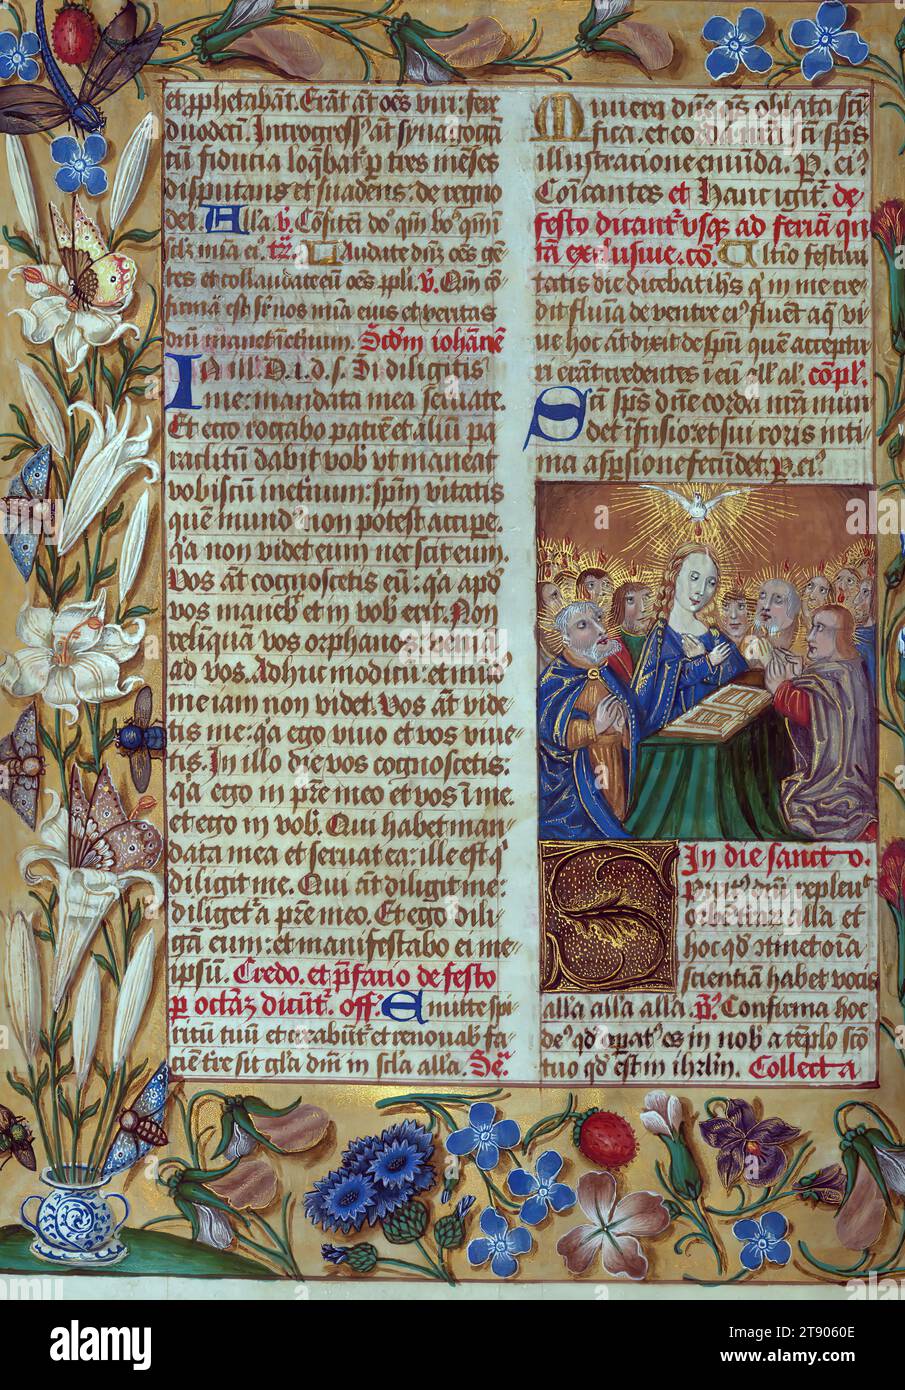 et prophetabāt. Erāt āt oēs viri: fere
duodecī. Introgressꝰ āt synagogā
cū fiducia loq̄bat͛ p tres mēses
disputans et suadens: de regno
dei. Alla. ℣. Cōfitem̄ dō qm̄ bonꝰ qm̄ in
sc̄lz mīa eiꝰ. tr̄. Laudate dn̄z oēs gē
tes et collaudate eū oēs ppl̄i. ℣. Qm̄ cō
firmā est sr̄ nos mīa eius et veritas
dn̄i manet in eternum. Scd̄m iohānē
In ill̄. D. i. d. s. Si diligitis
me: mandata mea servate.
Et ego rogabo patrē et aliū pa
raclitū dabit vob̄ vt maneat
vobiscū in eternum: spm̄ vitatis
quē mundꝰ non potest accipe.
q̄a non videt eum nec scit eum.
Vos āt cognoscetis eū: q̄a apd̄
vos manebit et in vob̄ erit. Non
relīquam vos orphanos: veniā
ad vos. Adhuc modicū: et mūdꝰ
me iam non videt. Vos āt vide-
tis me: q̄a ego vivo et vos vive-
tis. In illo die vos cognoscetis.
q̄a ego in pr̄e meo et vos ī me.
et ego in vob̄. Qui habet man
data mea et servat ea: ille est q̄
diligit me. Qui āt diligit me:
diliget͛ a pr̄e meo. Et ego dili-
gā eum: et manifestabo ei me-
ipsum. Credo. et p̄facio de festo
p octaꝫ dicūt͛. off. Emitte spi
ritū tuū et creabūt͛ et renovab̄ fa
ciē tr̄e sit gl̄a dn̄i in sc̄la alla. Se͛.
Munera dn̄e qs oblata scī
fica. et corda nr̄a scī spūs
illustratione emūda. P. eiꝰ
Cōicantes et Hanc igit͛. de
festo dicant͛ usq̄ ad feriā quī
tā exclusive. cō. Ultio festivi
tatis die dicebat ih̄s q̄ in me cre
dit flumīa de ventre eiꝰ fluent aq̄ vi
ve hoc āt dixit de spū quē acceptu
ri erāt credentes ī eū all̄ al. cōpl.
Scī spūs dn̄e corda nr̄a mun
det īfusio: et sui roris inti
ma aspsione fecūdet. P. eiꝰ
In die sancto.
Spiritꝰ dn̄i replevit
orbē trr̄aꝝ alla et
hoc qd̄ ↄtinet oīa
scientiam habet vocis
alla alla alla. Ps̄. Confirma hoc
deꝰ qd̄ opatꝰ es in nob̄ a tēplo scō
tuo qd̄ est in ihrlm̄. Collecta
alamy
Image ID: 2T9060E
www.alamy.com